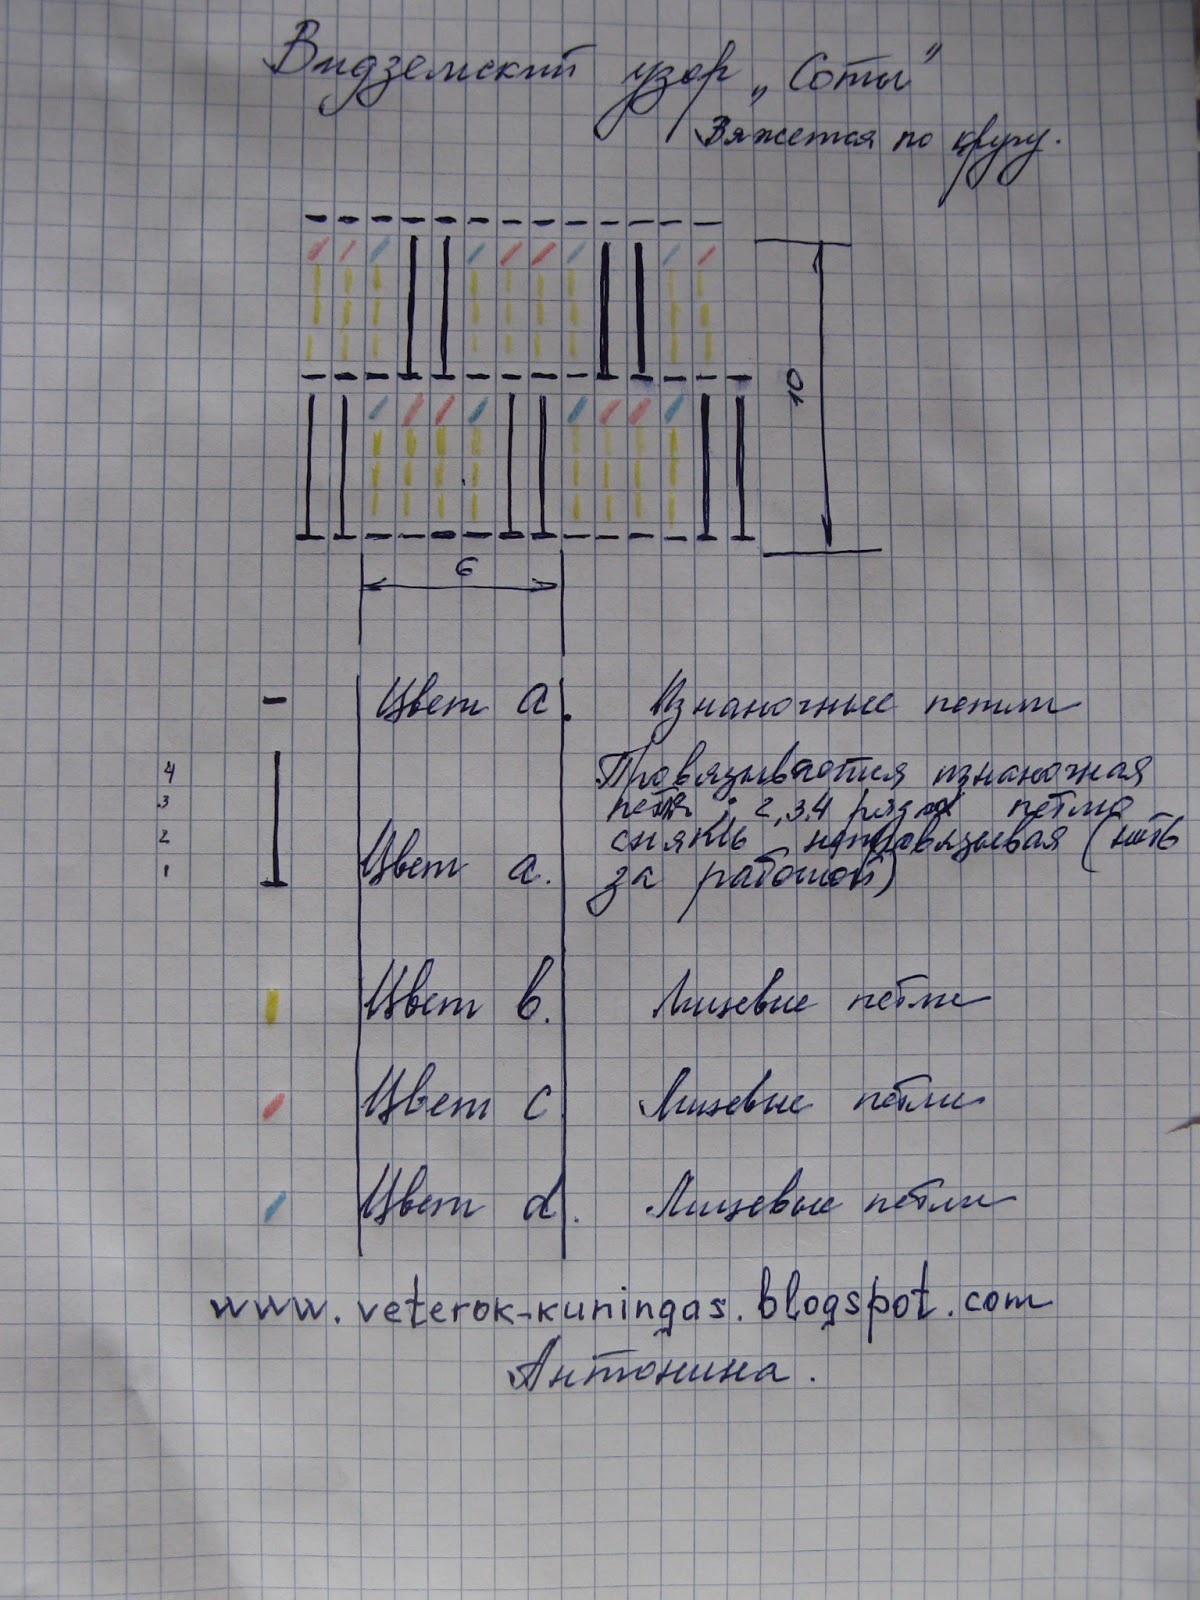 Видземский узор „Соты”
Вяжется по кругу.
10
6
- Цвет a. Изнаночные петли
4
3
2
1
Цвет a.
Провязывается изнаночная
петля; 2,3,4 рядах петлю
снять непровязывая (нить
за работой)
Цвет b. Лицевые петли
Цвет c Лицевые петли
Цвет d. Лицевые петли
www.veterok-kuningas.blogspot.com
Антонина.